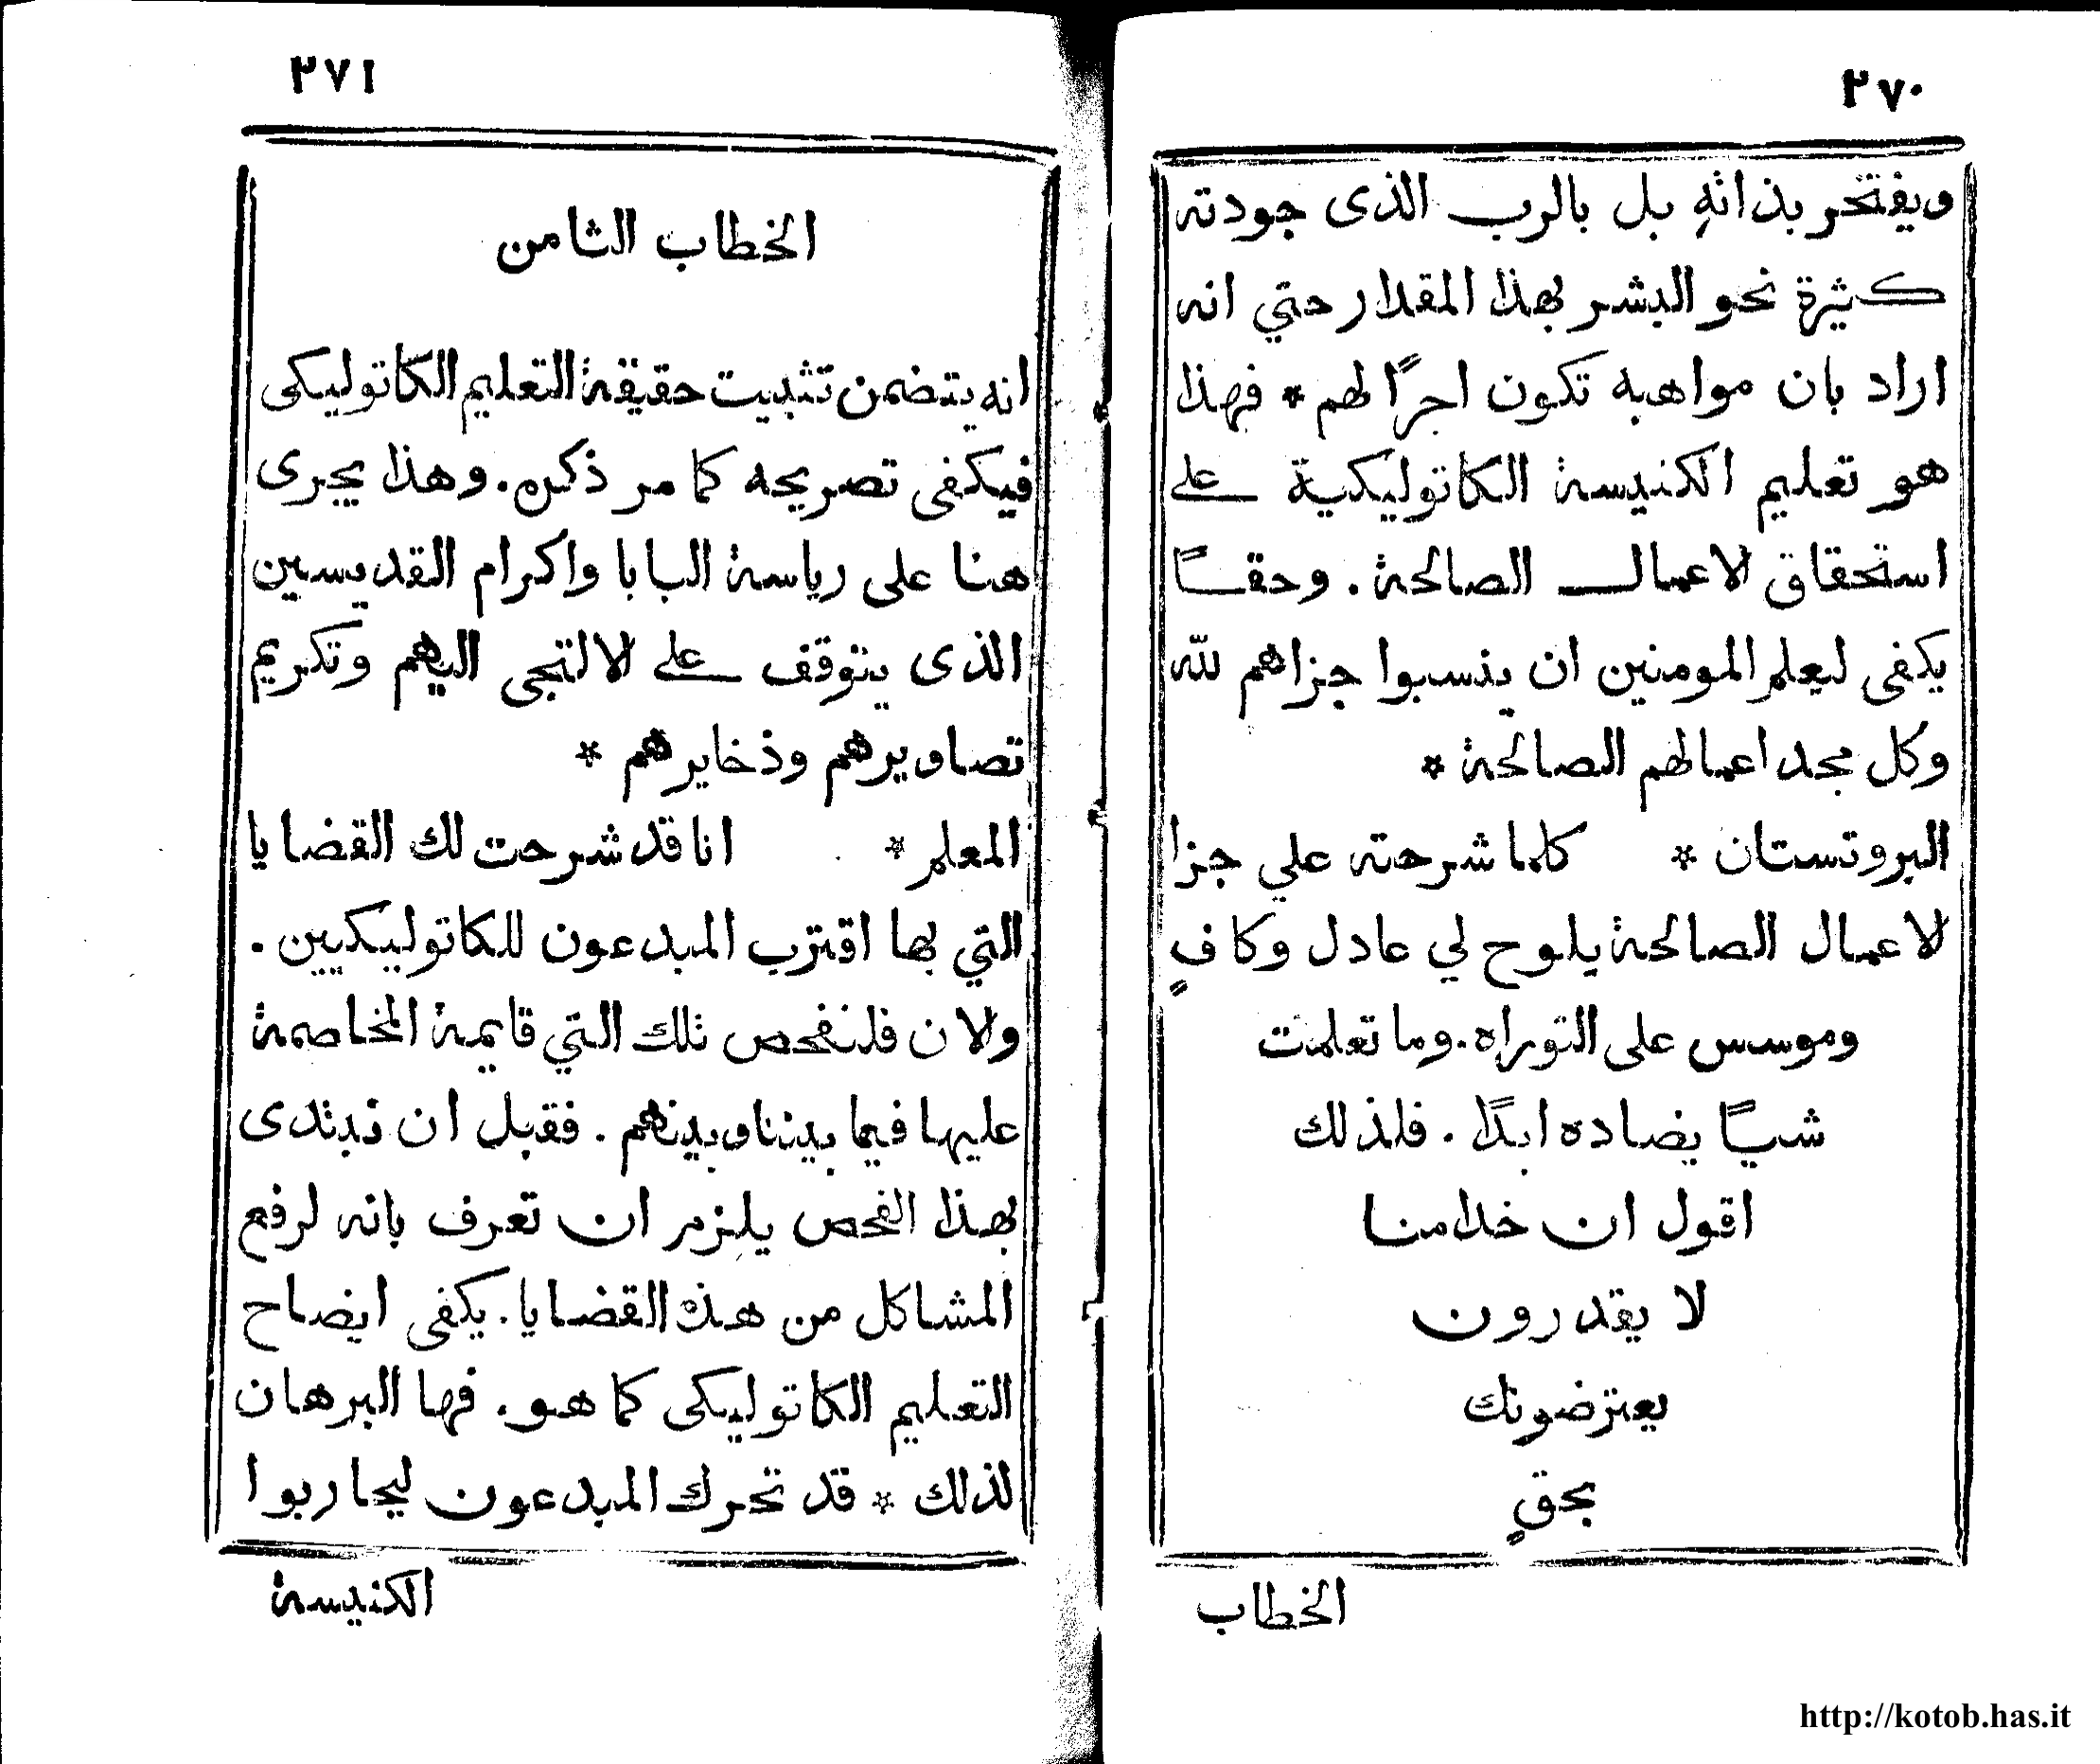 ٢٧٠
ويفتخر بذاته بل بالرب الذى جودته
كثيرة نحو البشر بهذا المقدار حتي انه
اراد بان مواهبه تكون اجرًا لهم * فهذا
هو تعليم الكنيسة الكاتوليكية على
استحقاق لاعمال الصالحة . وحقــًا
يكفى ليعلم المومنين ان ينسبوا جزاهم لله
وكل مجد اعمالهم الصالحة *
البروتستان * كلما شرحته علي جزا
لاعمال الصالحة يلوح لي عادل وكافٍ
وموسس على التوراه . وما تعلمت
شيـًا يضاده ابدًا . فلذلك
اقول ان خدامنا
لا يقدرون
يعترضونك
بحقٍ
الخطاب
٢٧١
الخطاب الثامن
انه يتضمن تثبيت حقيقة التعليم الكاتوليكى
فيكفى تصريحه كما مر ذكره . وهذا يجرى
هنا على رياسة البابا واكرام القديسين
الذى يتوقف على لالتجى اليهم وتكريم
تصاويرهم وذخايرهم *
المعلم * انا قد شرحت لك القضايا
التي بها اقترب المبدعون للكاتوليكيين .
ولان فلنفحص تلك التي قايمة المخاصمة
عليها فيما بيننا وبينهم . فقبل ان نبتدى
بهذا الفحص يلزم ان تعرف بانه لرفع
المشاكل من هذه القضايا . يكفى ايضاح
التعليم الكاتوليكى كما هو . فها البرهان
لذلك * قد تحرك المبدعون ليحاربوا
الكنيسة
http://kotob.has.it